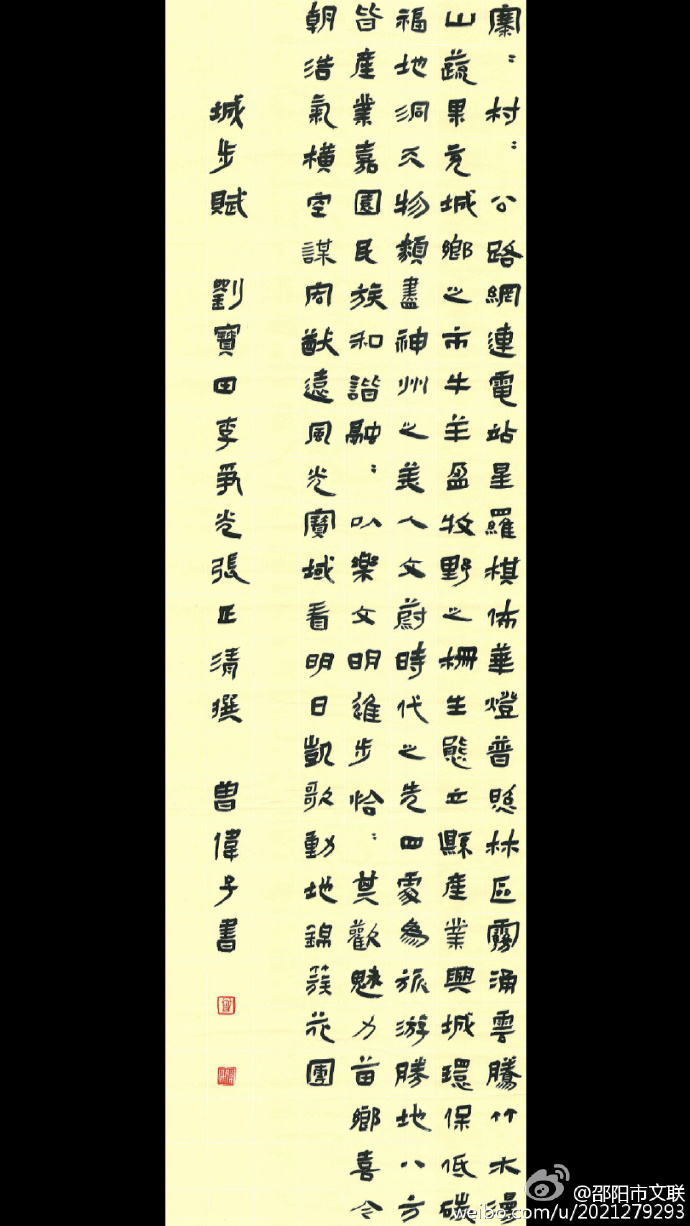 寨：村：公路網連電站星羅棋佈華燈普照林區霧涌雲騰竹木漫
山蔬果充城鄉之市牛羊盈牧野之柵生態立縣產業興城環保低碳
福地洞天物類盡神州之美人文蔚時代之先四處為旅游勝地八方
皆產業嘉園民族和諧融：以樂文明進步恰：其歡魅力苗鄉喜今
朝浩氣橫空謀周猷遠風光寶域看明日凱歌動地錦簇花團
城步賦 劉寶田李爭光張正清撰 曾偉子書
@邵阳市文联
weibo.com/u/2021279293